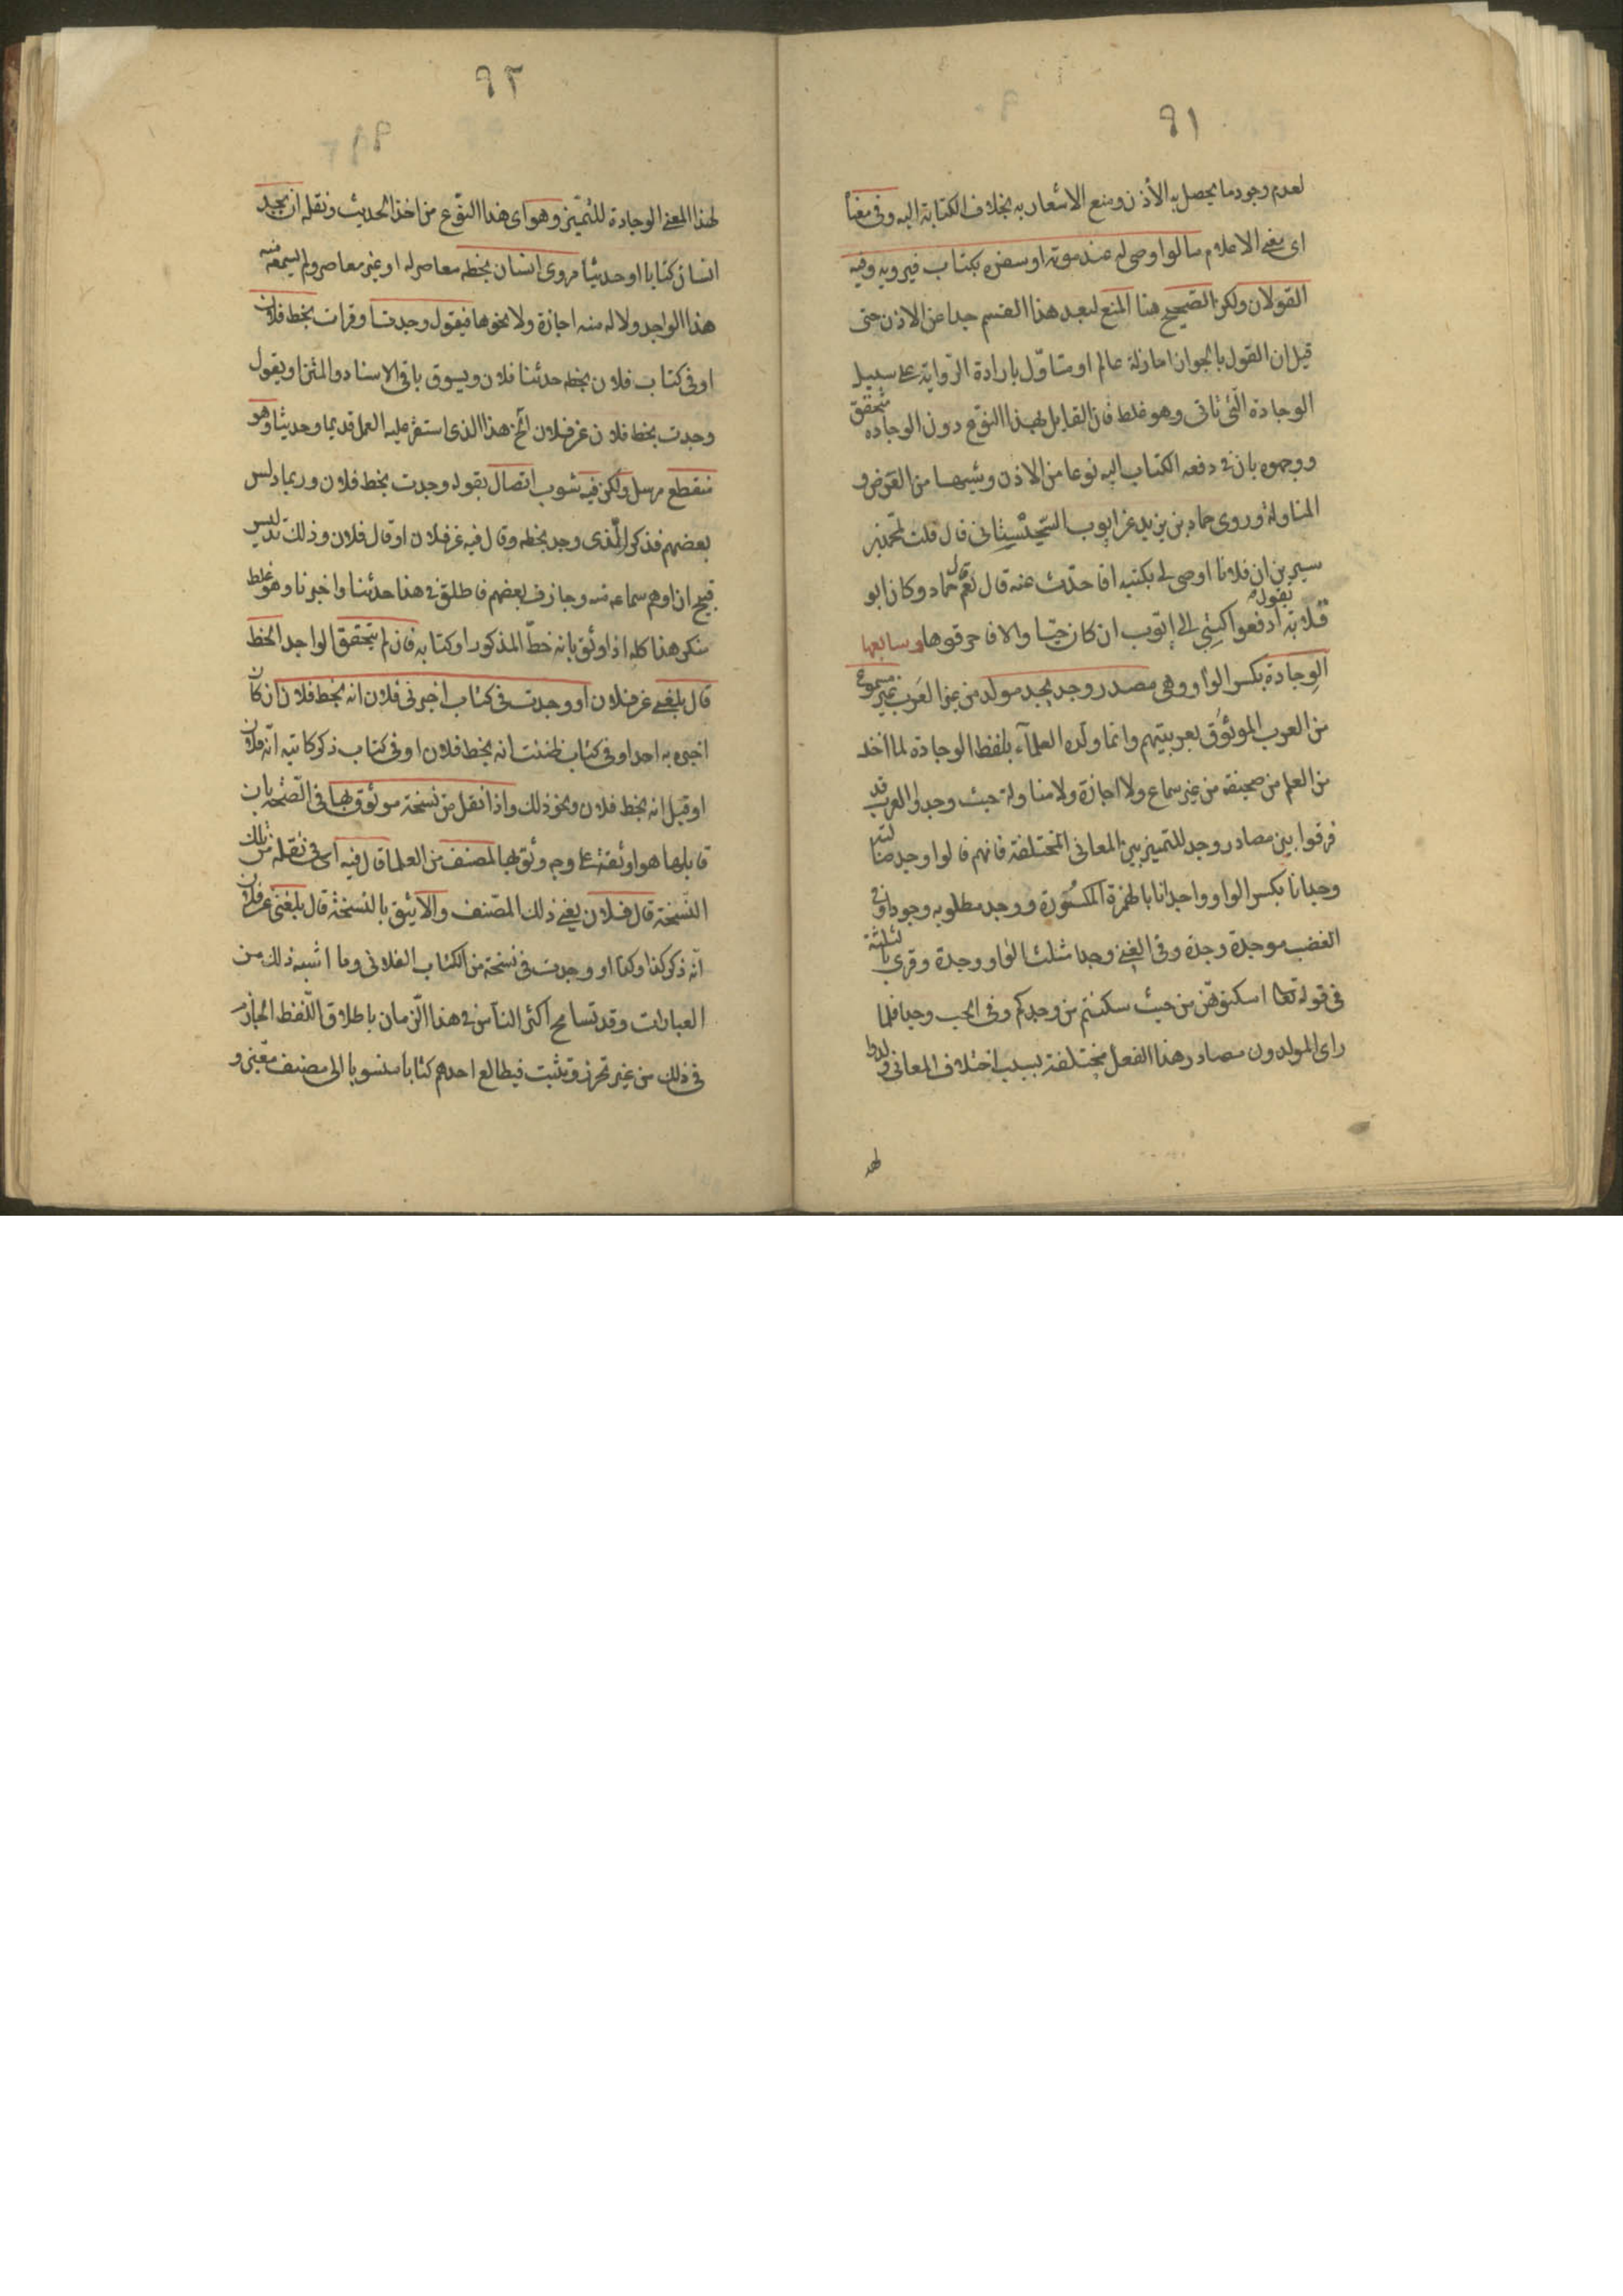 ٩١
لعدم وجود ما يحصل به الأذن ومنع الاشعار به بخلاف الكتابة اليه وفي معناه
اى معنى الاعلام ما لو اوصى له عند موته او سفره بكتاب فيرويه وفيه
القولان ولكن الصحيح هنا المنع لبعد هذا القسم جدا عن الاذن حتى
قيل ان القول بالجواز اما زلة عالم او متأوّل بارادة الرّواية على سبيل
الوجادة الّتى تاتى وهو غلط فان القايل بهذا النوّع دون الوجاده متحقق
ووجهوه بان في دفعه الكتاب اليه نوعا من الاذن وشبهها من العرض و
المناولة وروى حماد بن زيد عن ايوب السّجستانى قال قلت لمحمد بن
سيرين ان فلانا اوصى لى بكتبه افاحدّث عنه قال نعم قال حماد وكان ابو
قلابة يقول ادفعوا كتبى الى ايّوب ان كان حيّا والا فاحرقوها وسابعها
الوِجادة بكسر الواو وهى مصدر وجد يجد مولد من غير العَرب غير مسموع
من العرب الموثوق بعربيتهم وانما ولّده العلمآء بلفظ الوجادة لما اخذ
من العلم من صحيفة من غير سماع ولا اجازة ولا مناولة حيث وجدوا العرب قد
فرقوا بين مصادر وجد للتمييز بين المعانى المختلفة فانهم قالوا وجد ضالته
وجدانا بكسر الواو واجدانا بالهمزة المكسُورة ووجد مطلوبه وجودا وفى
الغضب موجدة وجدة وفى الغنى وجدا مثلث الواو وجدة وقرئ بالثلثة
فى قوله تعا اسكنوهّن من حيث سكنتم من وجدكم وفى الحب وجدا فلما
راى المولدون مصادر هذا الفعل مختلفة بسبب اختلاف المعانى ولدوا
لهذ
٩٢
لهذا المعنى الوجادة للتميّز وهو اى هذا النوّع من اخذ الحديث ونقله ان يجد
انسان كتابا او حديثا مروى انسان بخطه معاصر له او غير معاصر ولم يسمعه منه
هذا الواجد ولا له منه اجازة ولا نحوها فيقول وجدت او قرات بخط فلان
او فى كتاب فلان بخطه حدثنا فلان ويسوق باقى الاسناد والمتن او يقول
وجدت بخط فلان عن فلان الخ هذا الذى استقر عليه العمل قديما وحديثا وهو
منقطع مرسل ولكن فيه شوب اتصال بقوله وجدت بخط فلان وربما دلس
بعضهم فذكر الّذى وجد بخطه وقال فيه عن فلان او قال فلان وذلك تدليس
قبيح ان اوهم سماعه منه وجازف بعضهم فاطلق في هذا حدثنا واخبرنا وهو غلط
منكر هذا كله اذا وثق بانه خطّ المذكور او كتابه فان لم يتحقق الواجد الخط
قال بلغنى عن فلان او وجدت فى كتاب اخبرنى فلان انه بخط فلان ان كان
اخبره به احد او فى كتاب ظننت انه بخط فلان او فى كتاب ذكر كاتبه انّه فلان
او قيل انه بخط فلان ونحو ذلك واذا نقل من نسخة موثوق بها فى الصّحه بان
قابلها هو او ثقة على وجه وثق بها لمصنف من العلما قال فيه اى فى نقله من تلك
النّسخة قال فلان يعنى ذلك المصّنف والا يثق بالنسخة قال بلغنى عن فلان
انّه ذكر كذا وكذا او وجدت فى نسخة من الكتاب الفلانى وما اشبه ذلك من
العبارات وقد تسامح اكثر النّاس في هذا الزّمان باطلاق اللّفظ الجازم
فى ذلك من غير تحرز وتثبت فيطالع احدهم كتابا منسوبا الى مصنف معّين و